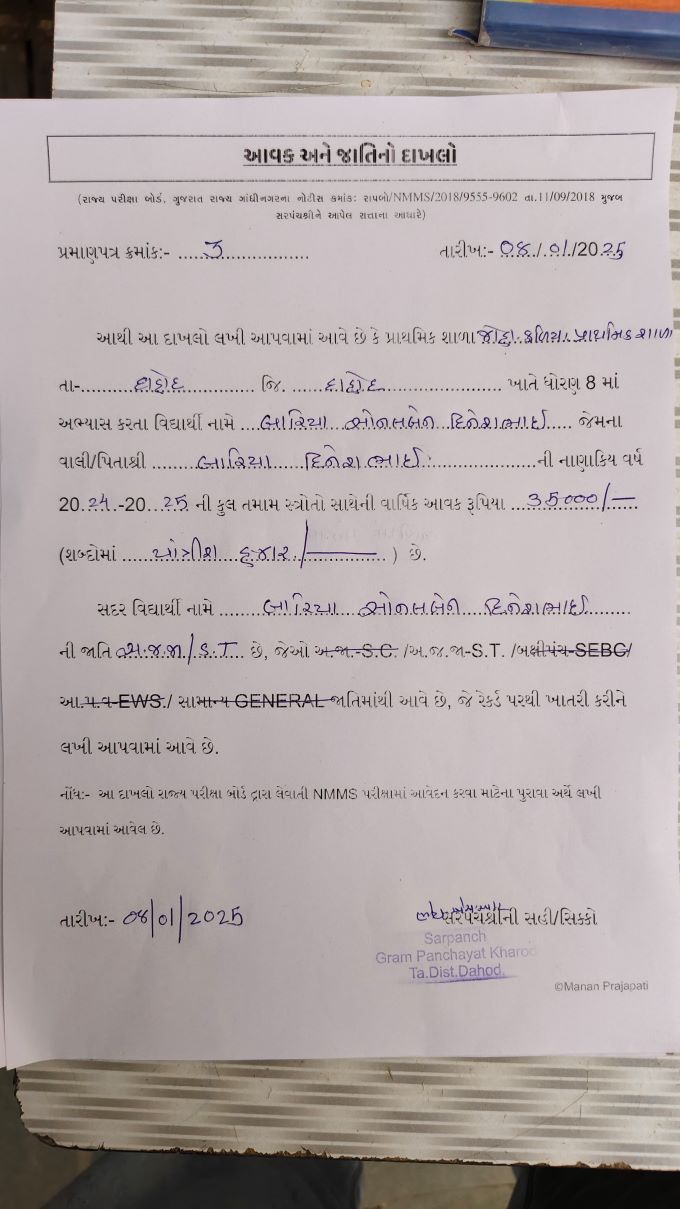 આવક અને જાતિનો દાખલો
(રાજ્ય પરીક્ષા બોર્ડ, ગુજરાત રાજ્ય ગાંધીનગરના નોટીસ ક્રમાંક: રાપબો/NMMS/2018/9555-9602 તા.11/09/2018 મુજબ
સરપંચશ્રીને આપેલ સત્તાના આધારે)
પ્રમાણપત્ર ક્રમાંક:- ....3.................. તારીખ:- 08/.01/2025
આથી આ દાખલો લખી આપવામાં આવે છે કે પ્રાથમિક શાળા ફળિયા પ્રાથમિક શાળા
તા-.........દાહોદ............ જિ. .....દાહોદ..................... ખાતે ધોરણ 8 માં
અભ્યાસ કરતા વિદ્યાર્થી નામે ...બારિયા સોનલબેન દિનેશભાઈ..... જેમના
વાલી/પિતાશ્રી ........બારિયા.....દિનેશભાઈ..................ની નાણાકિય વર્ષ
20.24.-20...25 ની કુલ તમામ સ્ત્રોતો સાથેની વાર્ષિક આવક રૂપિયા ...35000/—
(શબ્દોમાં ..... હજાર/—............ ) છે.
સદર વિદ્યાર્થી નામે ........બારિયા....સોનલબેન....દિનેશભાઈ........
ની જાતિ અ.જ.જા/S.T.... છે, જેઓ અ.જા.-S.C. /અ.જ.જા-S.T. /બક્ષીપંચ-SEBC/
આ.પ.વ-EWS./ સામાન્ય GENERAL જાતિમાંથી આવે છે, જે રેકર્ડ પરથી ખાતરી કરીને
લખી આપવામાં આવે છે.
નોંધ:- આ દાખલો રાજ્ય પરીક્ષા બોર્ડ દ્રારા લેવાતી NMMS પરીક્ષામાં આવેદન કરવા માટેના પુરાવા અર્થે લખી
આપવામાં આવેલ છે.
તારીખ:- 08/01/2025
સરપંચશ્રીની સહી/સિક્કો
Sarpanch
Gram Panchayat Kharod
Ta.Dist.Dahod.
©Manan Prajapati